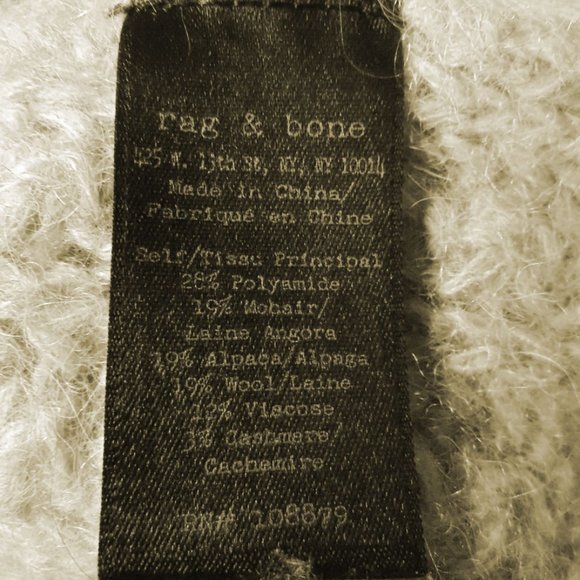 rag & bone
425 W. 13th St, NY, NY 10014
Made in China/
Fabriqué en Chine
Self/Tissu Principal
28% Polyamide
19% Mohair/
Laine Angora
19% Alpaca/Alpaga
19% Wool/Laine
12% Viscose
3% Cashmere/
Cachemire
RN# 108879